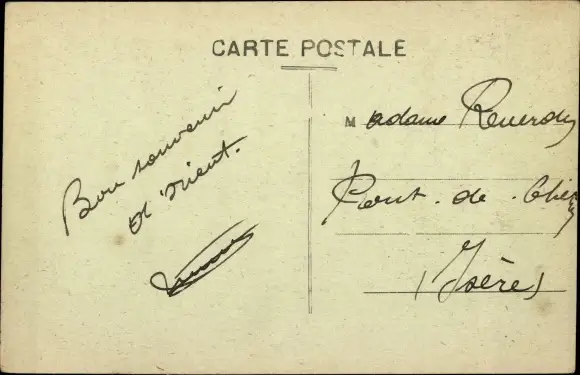 CARTE POSTALE
Bon souvenir
d'orient.
Madame Reverdy
Pont-de-Chéruy
(Isère)